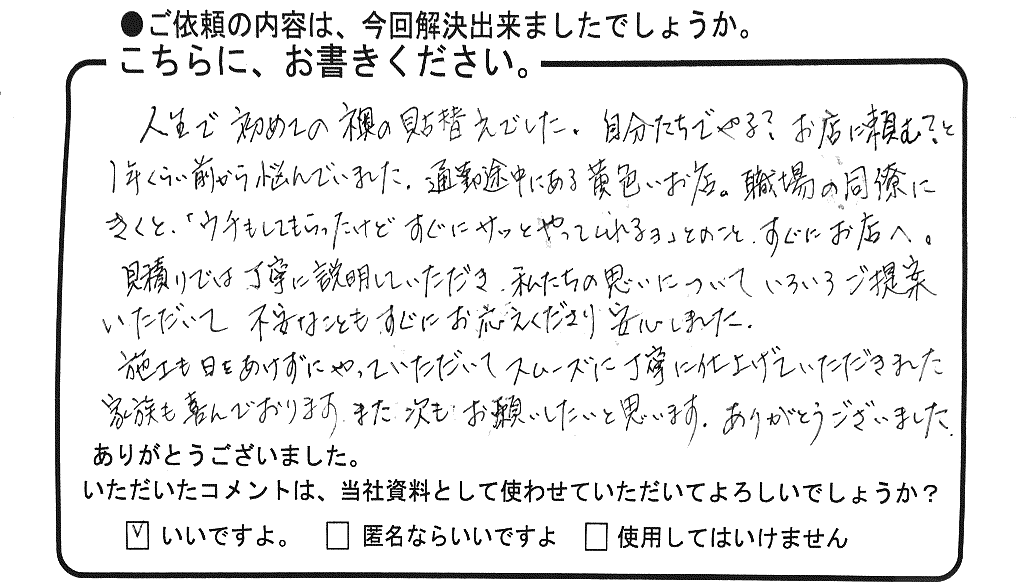 ●ご依頼の内容は、今回解決出来ましたでしょうか。
こちらに、お書きください。
人生で初めての襖の貼替えでした。自分たちでやる?お店に頼む?と
1年くらい前から悩んでいました。通勤途中にある黄色いお店。職場の同僚に
きくと、「ウチもしてもらったけどすぐにサッとやってくれるヨ」とのこと、すぐにお店へ。
見積りでは丁寧に説明していただき、私たちの思いについていろいろご提案
いただいて不安なこともすぐにお応えくださり安心しました。
施工も日をあけずにやっていただいてスムーズに丁寧に仕上げていただきました
家族も喜んでおります。また次もお願いしたいと思います。ありがとうございました。
ありがとうございました。
いただいたコメントは、当社資料として使わせていただいてよろしいでしょうか?
☑ いいですよ。 □ 匿名ならいいですよ □ 使用してはいけません